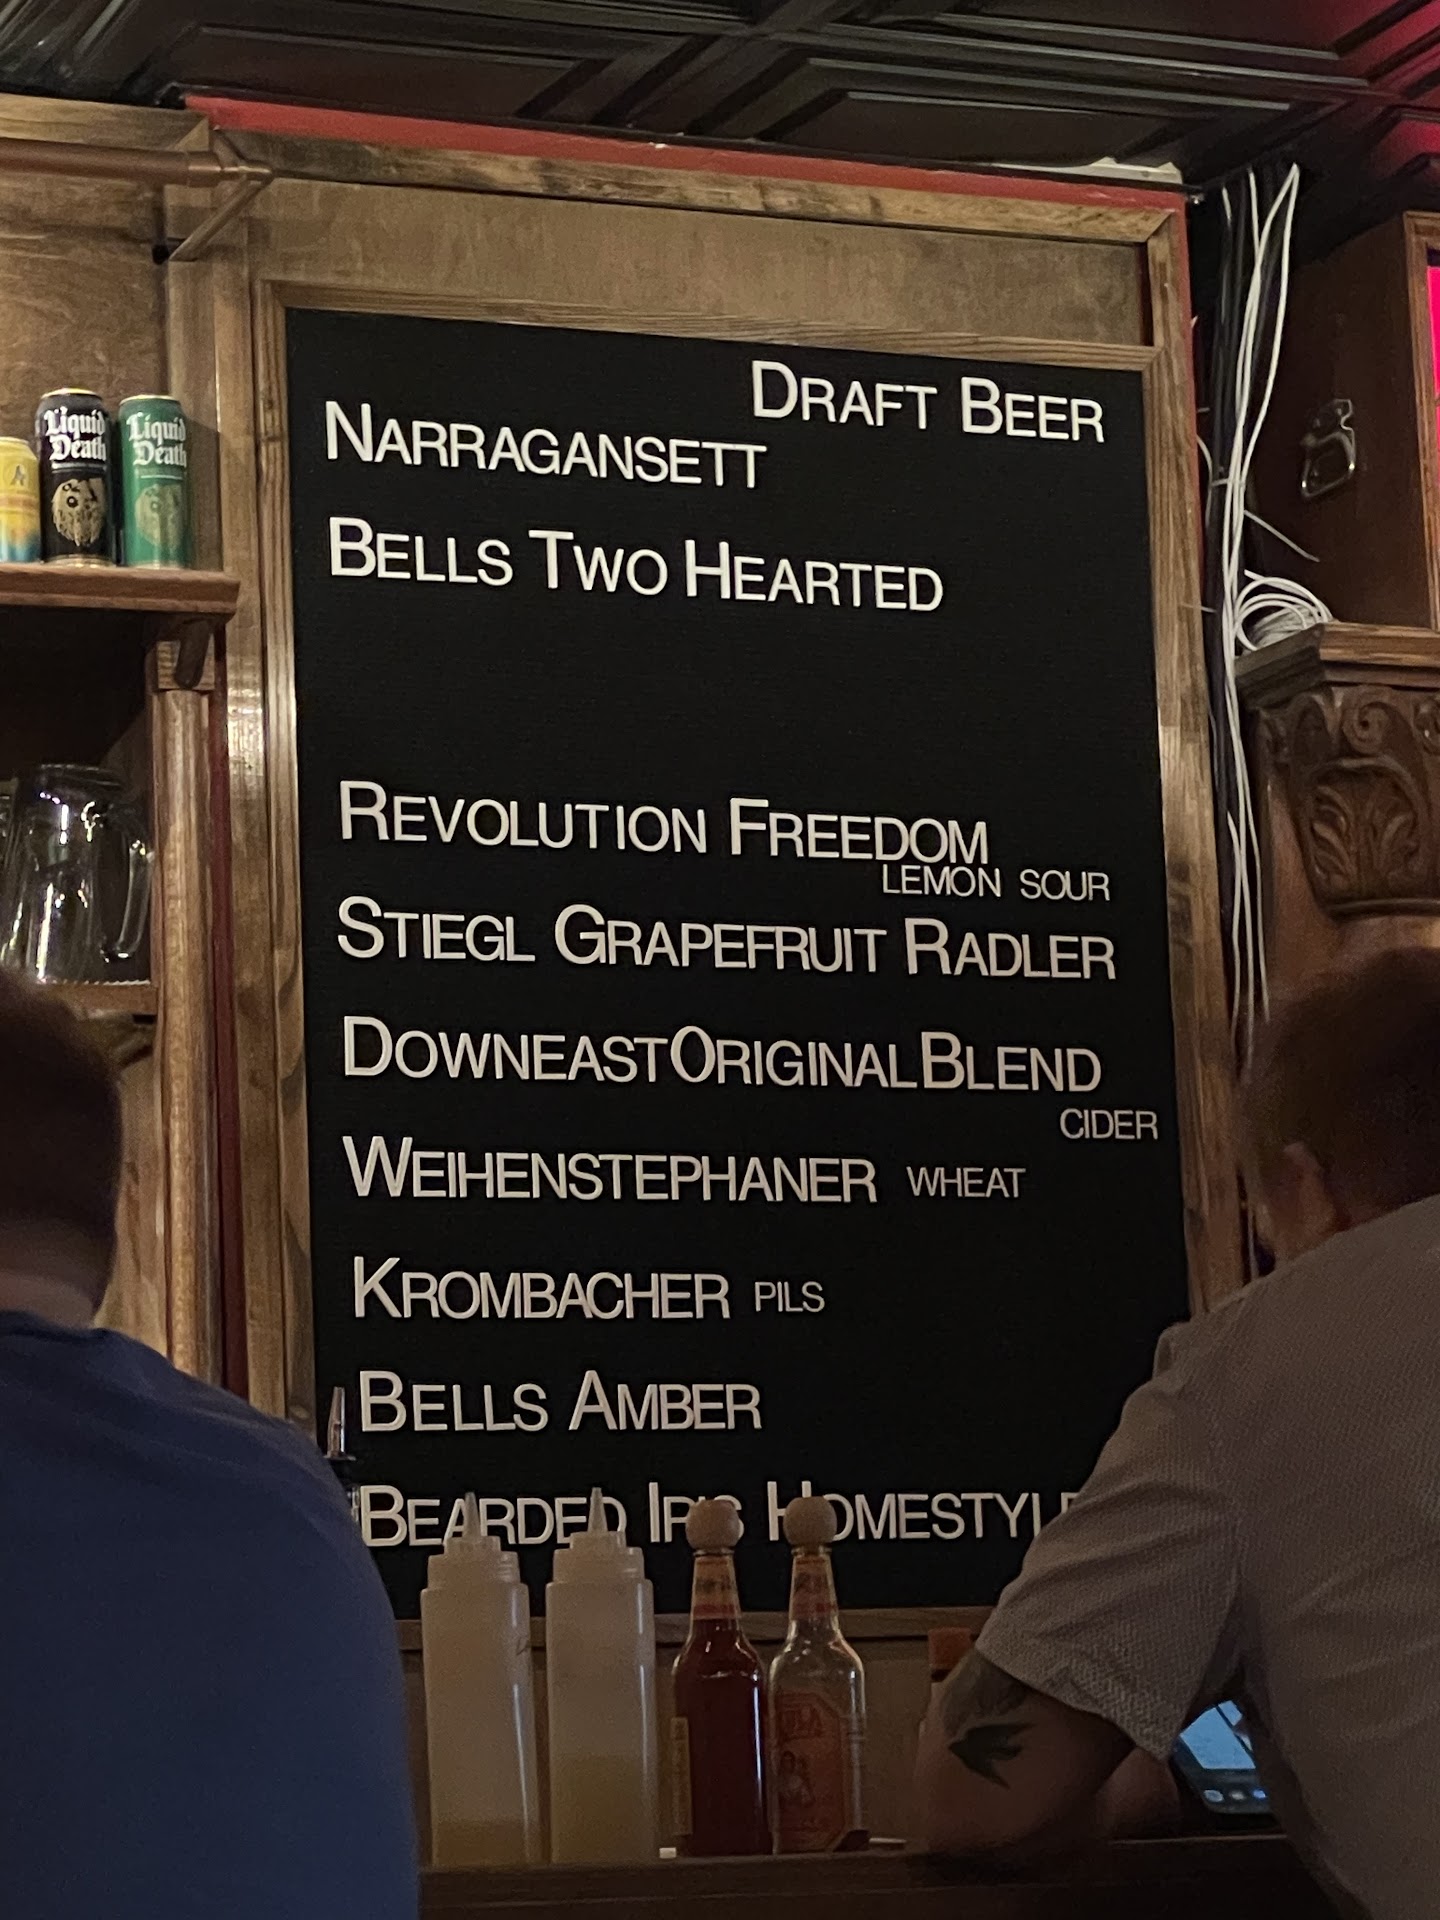 Draft Beer
Narragansett
Bells Two Hearted
Revolution Freedom
Lemon Sour
Stiegl Grapefruit Radler
Downeast Original Blend
Cider
Weihenstephaner Wheat
Krombacher Pils
Bells Amber
Bearded Iris Homestyle
Liquid
Death
Liquid
Death